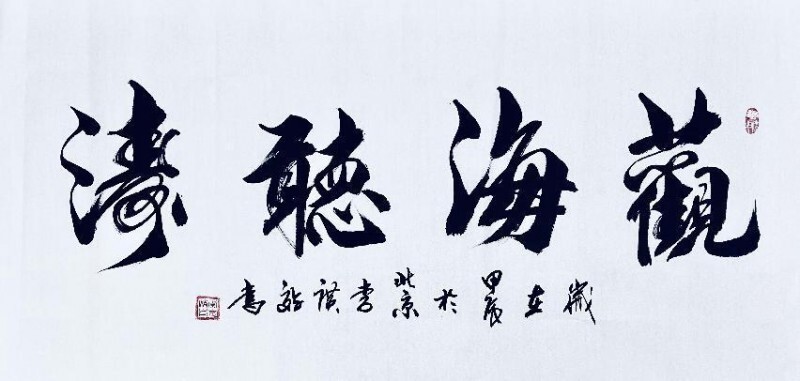 觀海聽濤
歲在甲辰於北京李
書